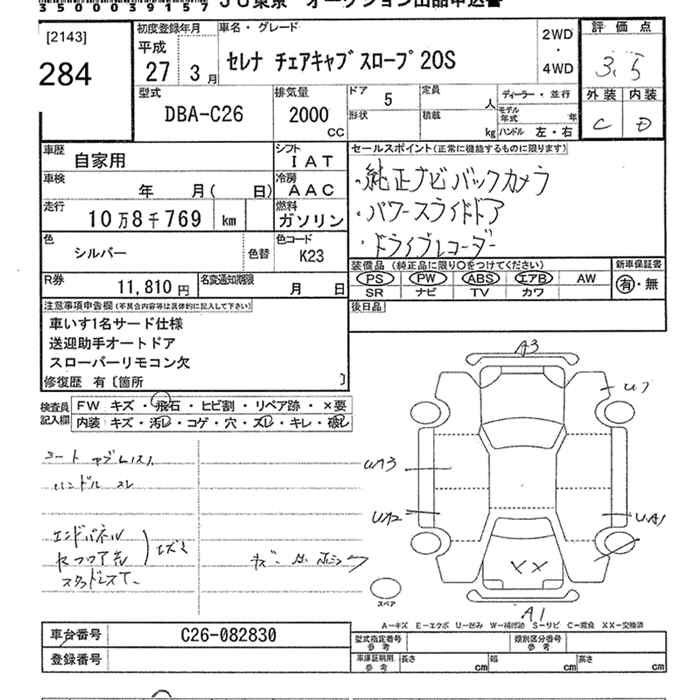 350003915
[2143]
284
初度登録年月
平成
27 3 月
車名・グレード
セレナ チェアキャブスロープ 20S
2WD
・
4WD
評価点
3.5
外装 内装
C D
型式
DBA-C26
排気量
2000
CC
ドア
5
形状
定員
人
積載
kg
ディーラー・並行
モデル年式
年
ハンドル 左・右
車歴
自家用
シフト
IAT
車検
年 月( 日)
冷房
AAC
走行
10万8千769 km
燃料
ガソリン
色
シルバー
色替
色コード
K23
R券
11,810 円
名変通知期限
月 日
セールスポイント(正常に機能するものに限ります)
・純正ナビ バックカメラ
・パワースライドドア
・ドライブレコーダー
装備品 (純正品に限り○をつけてください)
PS PW ABS エアB AW
SR ナビ TV カワ
新車保証書
有・無
後日品
注意事項申告欄(不具合内容等は具体的に記入して下さい)
車いす1名サード仕様
送迎助手オートドア
スローパーリモコン欠
修復歴 有〔箇所 〕
検査員
記入欄
FW キズ・飛石・ヒビ割・リペア跡・×要
内装 キズ・汚レ・コゲ・穴・スレ・キレ・破レ
ハンドル スレ
エンドパネル
A3
U7
A1
XX
スペア
A−キズ E−エクボ U−凹み W−補修跡 S−サビ C−腐食 XX−交換済
車台番号
C26-082830
登録番号
型式指定番号
参考
類別区分番号
参考
車庫証明用
参考
長さ cm
幅 cm
高さ cm